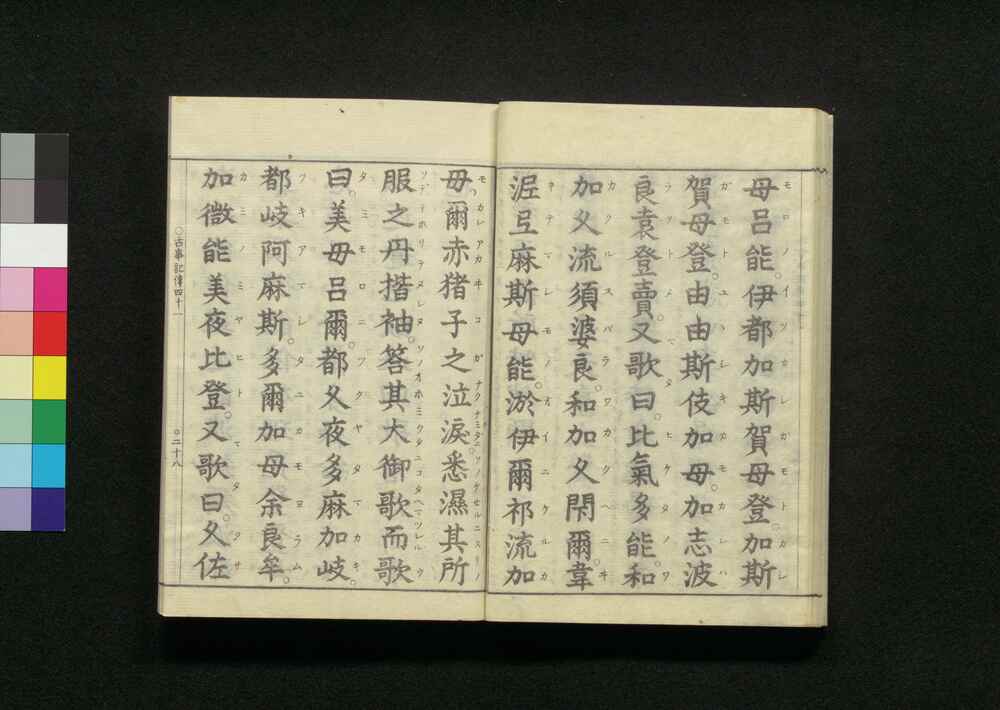 母呂能。伊都加斯賀母登。加斯
賀母登。由由斯伎加母。加志波
良袁登賣。又歌曰。比氣多能。和
加久流須婆良。和加久閇爾。韋
泥弖麻斯母能。淤伊爾祁流加
母。爾赤猪子之泣淚。悉濕其所
服之丹揩袖。答其大御歌而歌
曰。美母呂爾。都久夜多麻加岐。
都岐阿麻斯。多爾加母余良牟。
加微能美夜比登。又歌曰。久佐
○古事記傳四十一
○二十八